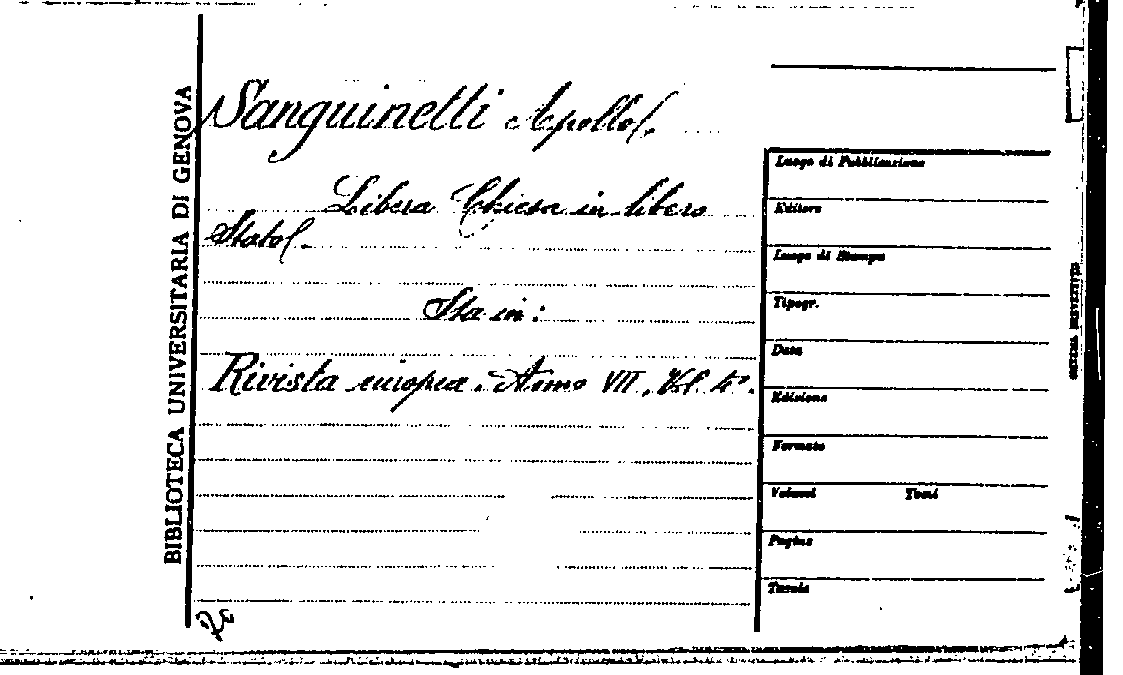 BIBLIOTECA UNIVERSITARIA DI GENOVA
Sanguinetti Apollo.
Libera Chiesa in libero
Stato.
Sta in:
Rivista europea. Anno VII, Vol. 4°.
Luogo di Pubblicazione
Editore
Luogo di Stampa
Tipogr.
Data
Edizione
Formato
Volumi Tomi
Pagine
Tavole